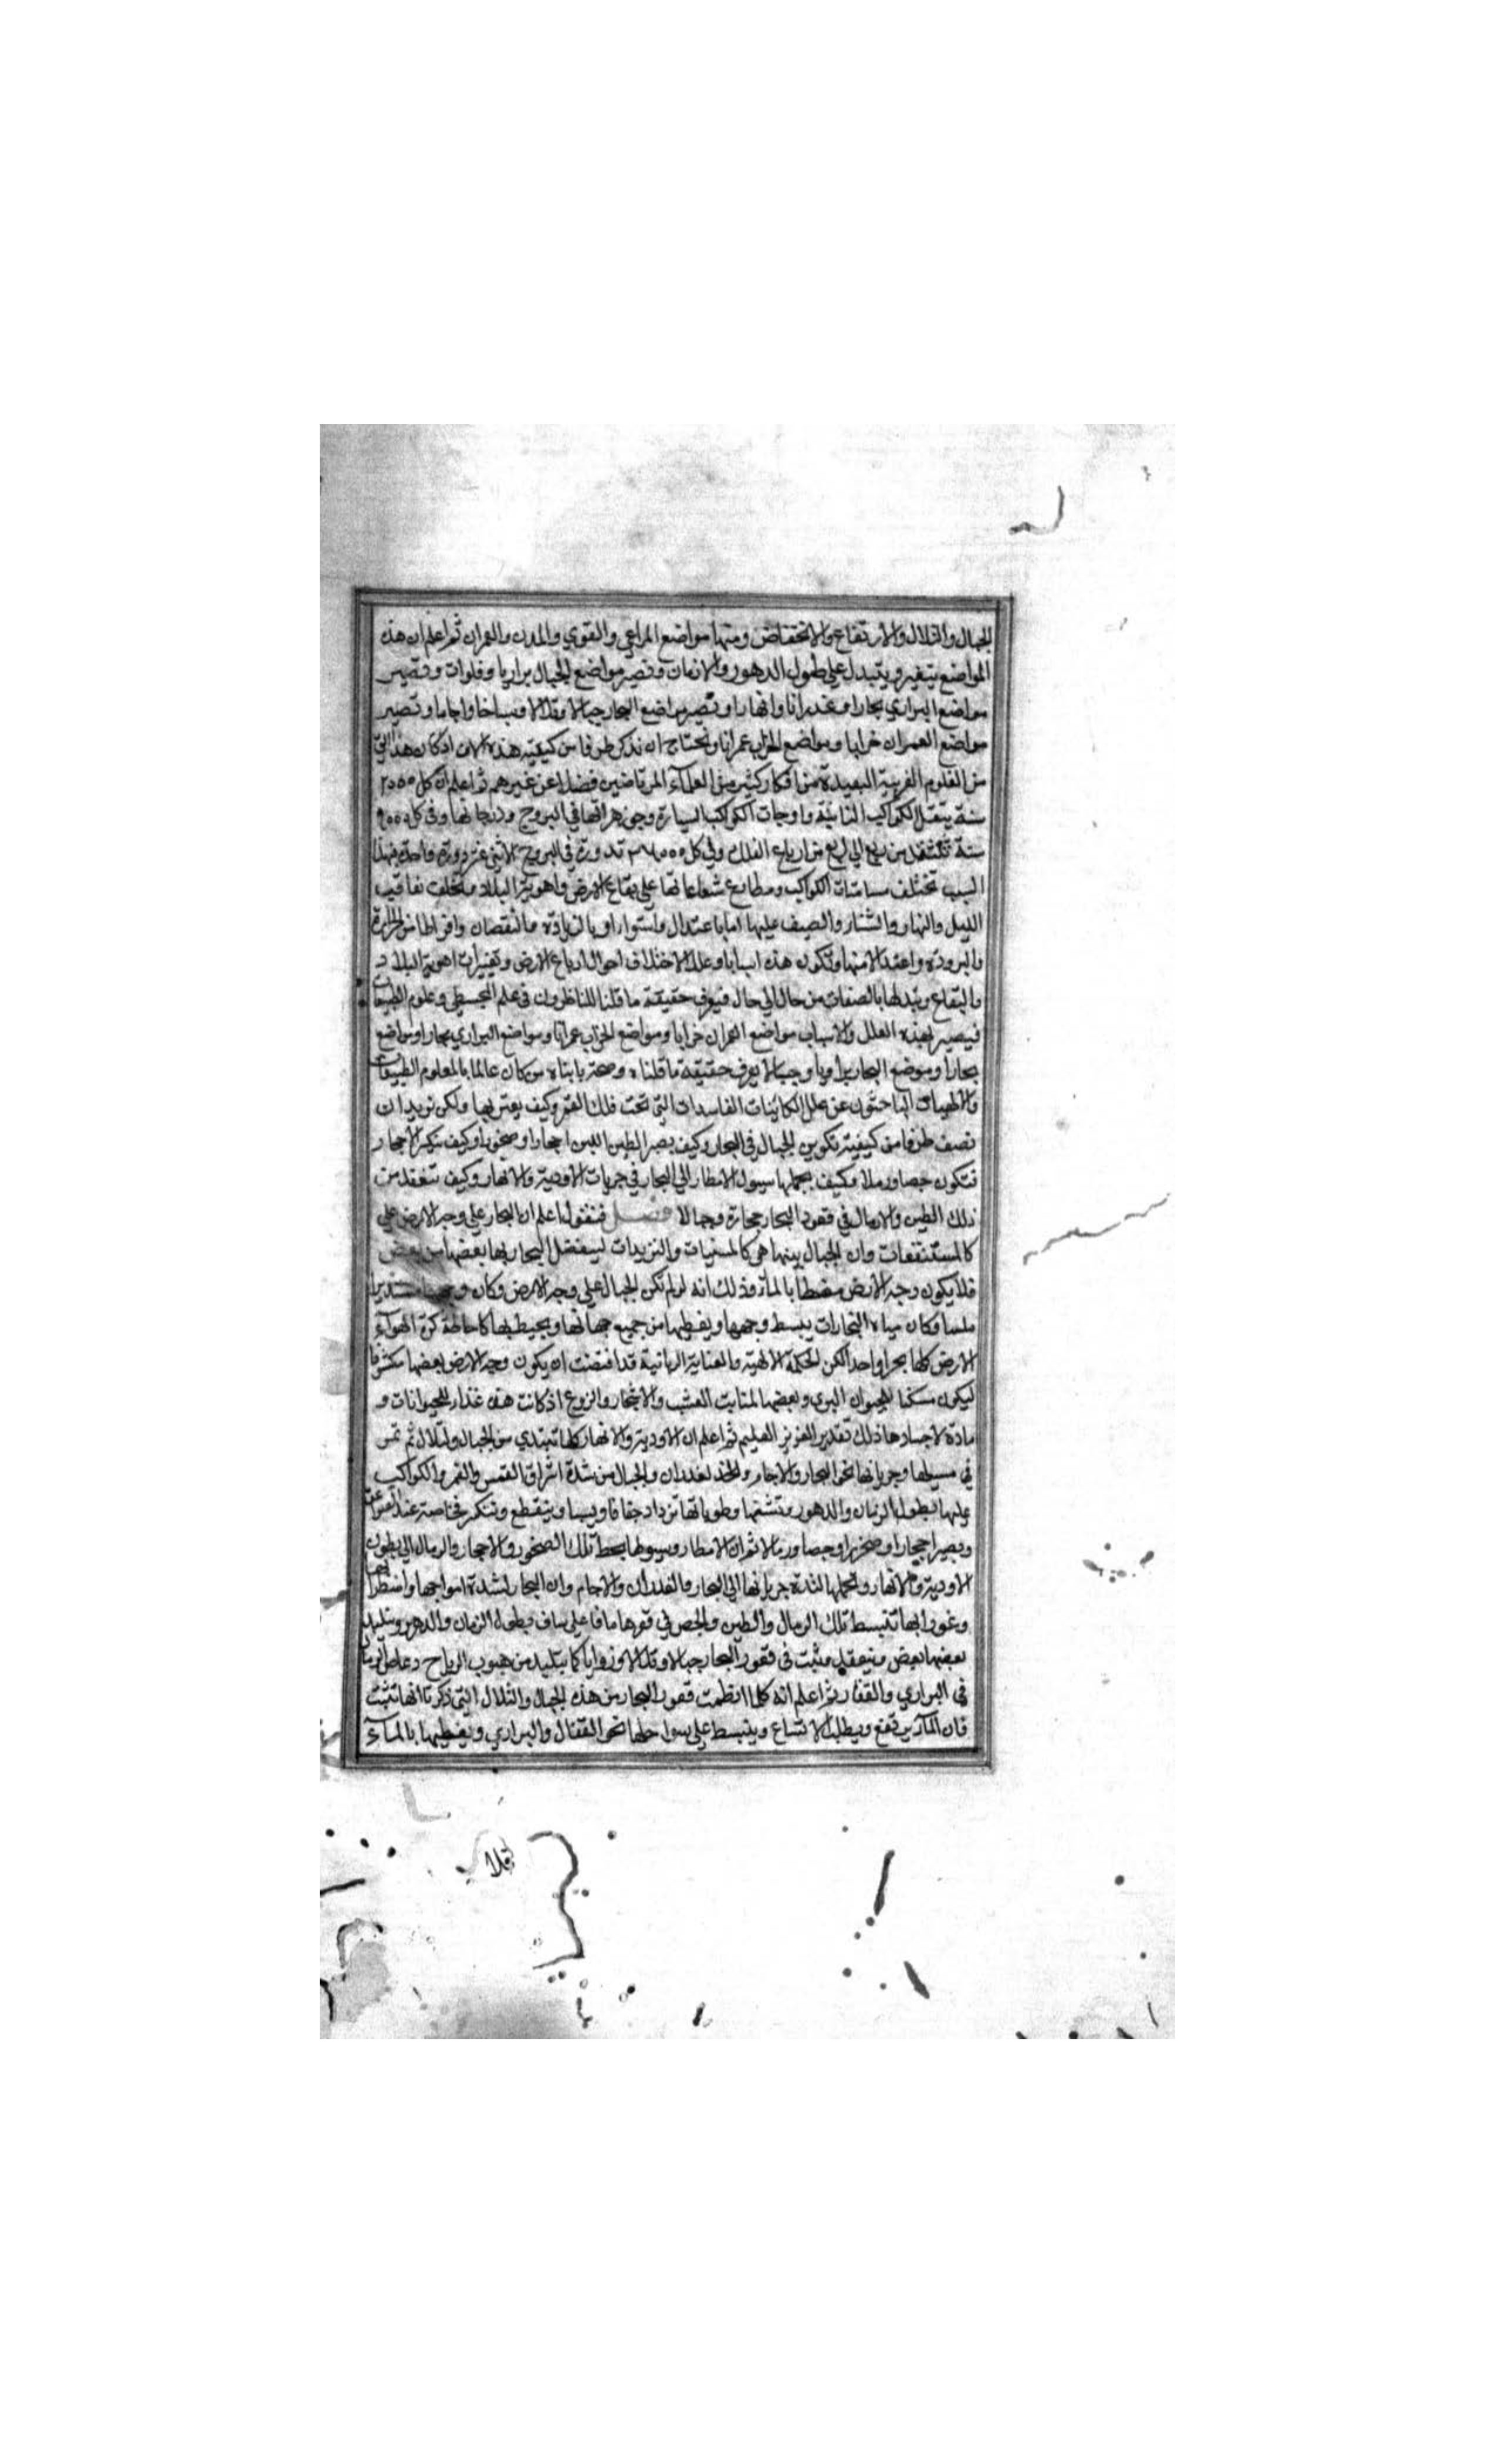 الجبال والتلال والارتفاع والانخفاض ومنها مواضع المراعي والقوي والمدن والعمران ثم اعلم ان هذه
المواضع يتغير ويتبدل علي طول الدهور والازمان وتصير مواضع الجبال براريا وفلوات وتصير
مواضع البراري بحارا وغدرانا وانهارا وتصير مواضع البحار جبالا وتلالا وسباخا واجاما وتصير
مواضع العمران خرابا ومواضع الخراب عمرانا ونحتاج ان نذكر طرفا من كيفية هذه اذ كان هذا
من العلوم الغريبة البعيدة من افكار كثير من العلماء المرتاضين فضلا عن غيرهم ثم اعلم ان كل ٣٠٠٠
سنة ينتقل الكواكب الثابتة واوجات الكواكب السيارة وجوزهراتها في البروج ودرجاتها وفي كل ٩٠٠٠
سنة تنتقل من ربع الي ربع من ارباع الفلك وفي كل ٣٦٠٠٠ تدور في البروج الاثني عشر دورة واحدة فبهذا
السبب تختلف مسامتات الكواكب ومطارح شعاعاتها علي بقاع الارض واهوية البلاد ويختلف تعاقب
الليل والنهار والشتاء والصيف عليها اما باعتدال واستواء او بالزيادة والنقصان وافراط من الحرارة
والبرودة واعتدالا منها وتكون هذه اسبابا وعللا لاختلاف احوال ارباع الارض وتغييرات اهوية البلاد
والبقاع وتبدلها بالصفات من حال الي حال فيعرف حقيقة ما قلنا للناظرون في علم المجسطي وعلوم الطبيعيات
فيصير بهذه العلل والاسباب مواضع العمران خرابا ومواضع الخراب عمرانا ومواضع البراري بحارا ومواضع
بحارا وموضع البحار براريا وجبالا يعرف حقيقة ما قلناه وصحة من كان عالما بالعلوم الطبيعيات
والالهيات الباحثون عن علل الكائينات الفاسدات التي تحت فلك القمر وكيف يعتريها ولكن نريد ان
نصف طرفا من كيفية تكوين الجبال في البحار وكيف يصير الطين اللين احجارا وصخورا وكيف تنكسر الاحجار
فتتكون حصا ورملا وكيف يحملها سيول الامطار الي البحار في جريات الاودية والانهار وكيف تنعقد من
ذلك الطين والارمال في قعود البحار حجارة وجبالا فصل فنقول اعلم ان البحار علي وجه الارض علي
كالمستنقعات وان الجبال بينها هي كالمسنيات والبزيدات ليفصل البحار بها بعضها من بعض
فلا يكون وجه الارض مغطا بالماء وذلك انه لو لم تكن الجبال علي وجه الارض وكان وجهها مستديرا
ملسا وكان مياه البحارات يبسط وجهها ويغطيها من جميع جهاتها ويحيط بها كاحاطة كرة الهواء
الارض كلها بحرا واحدا لكن الحكمة الالهية والعناية الربانية قد اقتضت ان يكون وجه الارض بعضها مكشوفا
ليكون مسكنا للحيوان البري وبعضها لمنابت العشب والاشجار والزروع اذ كانت هذه غذاء للحيوانات و
مادة لاجسادها ذلك تقدير العزيز العليم ثم اعلم ان الاودية والانهار كلها تبتدي من الجبال والتلال ثم تمر
في مسيلها وجريانها نحو البحار والاجام والغدران والجبال من شدة اشراق الشمس والقمر والكواكب
عليها بطول الزمان والدهور وتنشفها رطوباتها تزداد جفافا ويبسا وينقطع وتنكسر خاصة عند
ويصير احجارا وصخورا وحصا ورمالا ثم ان الامطار وسيولها يحط تلك الصخور والاحجار والرمال الي بطون
الاودية والانهار ولحملها لشدة جريانها الي البحار والغدران والاجام وان البحار لشدة امواجها واضطرابها
وغورانها تنبسط تلك الرمال والطين والحصي في قعرها سافا علي ساف بطول الزمان والدهر وتتلبد
بعضها ببعض وينعقد وينبت في قعور البحار جبالا وتلالا وزوايا كما يتلبد من هبوب الرياح دعاص الرمال
في البراري والقفار ثم اعلم انه كلما انطمت قعور البحار من هذه الجبال والتلال التي ذكرنا انها تثبت
فان الماء يرتفع ويطلب الاتساع وينبسط علي سواحلها نحو القفار والبراري ويغطيها بالماء
فلا